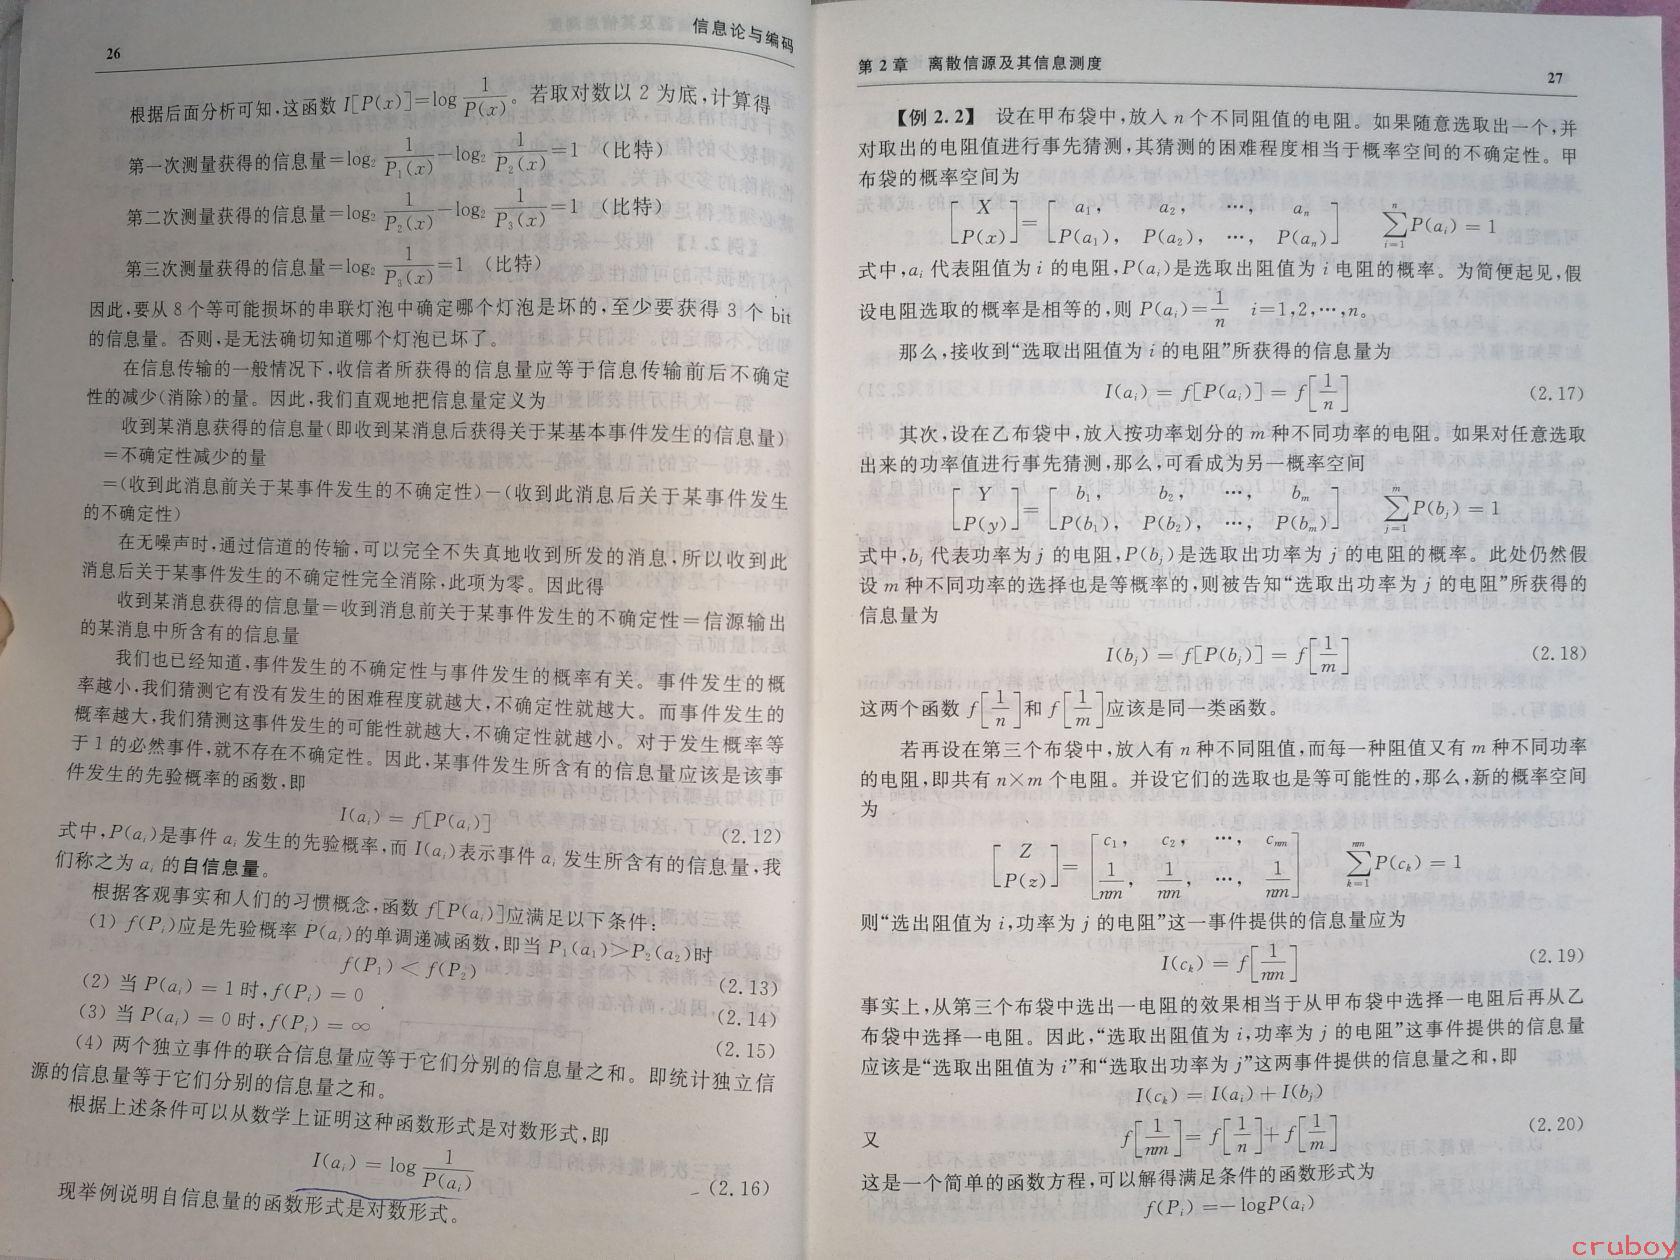 26
信息论与编码
根据后面分析可知,这函数 I[P(x)]=log 1/P(x)。若取对数以 2 为底,计算得
第一次测量获得的信息量=log₂ 1/P₁(x)−log₂ 1/P₂(x)=1 (比特)
第二次测量获得的信息量=log₂ 1/P₂(x)−log₂ 1/P₃(x)=1 (比特)
第三次测量获得的信息量=log₂ 1/P₃(x)=1 (比特)
因此,要从 8 个等可能损坏的串联灯泡中确定哪个灯泡是坏的,至少要获得 3 个 bit
的信息量。否则,是无法确切知道哪个灯泡已坏了。
在信息传输的一般情况下,收信者所获得的信息量应等于信息传输前后不确定
性的减少(消除)的量。因此,我们直观地把信息量定义为
收到某消息获得的信息量(即收到某消息后获得关于某基本事件发生的信息量)
=不确定性减少的量
=(收到此消息前关于某事件发生的不确定性)−(收到此消息后关于某事件发生
的不确定性)
在无噪声时,通过信道的传输,可以完全不失真地收到所发的消息,所以收到此
消息后关于某事件发生的不确定性完全消除,此项为零。因此得
收到某消息获得的信息量=收到消息前关于某事件发生的不确定性=信源输出
的某消息中所含有的信息量
我们也已经知道,事件发生的不确定性与事件发生的概率有关。事件发生的概
率越小,我们猜测它有没有发生的困难程度就越大,不确定性就越大。而事件发生的
概率越大,我们猜测这事件发生的可能性就越大,不确定性就越小。对于发生概率等
于 1 的必然事件,就不存在不确定性。因此,某事件发生所含有的信息量应该是该事
件发生的先验概率的函数,即
I(aᵢ) = f[P(aᵢ)] (2.12)
式中,P(aᵢ)是事件 aᵢ 发生的先验概率,而 I(aᵢ)表示事件 aᵢ 发生所含有的信息量,我
们称之为 aᵢ 的自信息量。
根据客观事实和人们的习惯概念,函数 f[P(aᵢ)]应满足以下条件:
(1) f(Pᵢ)应是先验概率 P(aᵢ)的单调递减函数,即当 P₁(a₁)>P₂(a₂)时
f(P₁) < f(P₂) (2.13)
(2) 当 P(aᵢ) = 1 时,f(Pᵢ) = 0 (2.14)
(3) 当 P(aᵢ) = 0 时,f(Pᵢ) = ∞ (2.15)
(4) 两个独立事件的联合信息量应等于它们分别的信息量之和。即统计独立信
源的信息量等于它们分别的信息量之和。
根据上述条件可以从数学上证明这种函数形式是对数形式,即
I(aᵢ) = log 1/P(aᵢ) (2.16)
现举例说明自信息量的函数形式是对数形式。
第 2 章 离散信源及其信息测度
27
【例 2.2】 设在甲布袋中,放入 n 个不同阻值的电阻。如果随意选取出一个,并
对取出的电阻值进行事先猜测,其猜测的困难程度相当于概率空间的不确定性。甲
布袋的概率空间为
[X P(x)] = [a₁, a₂, …, aₙ P(a₁), P(a₂), …, P(aₙ)] ∑ⁿᵢ₌₁ P(aᵢ) = 1
式中,aᵢ 代表阻值为 i 的电阻,P(aᵢ)是选取出阻值为 i 电阻的概率。为简便起见,假
设电阻选取的概率是相等的,则 P(aᵢ)=1/n i=1,2,…,n。
那么,接收到“选取出阻值为 i 的电阻”所获得的信息量为
I(aᵢ) = f[P(aᵢ)] = f[1/n] (2.17)
其次,设在乙布袋中,放入按功率划分的 m 种不同功率的电阻。如果对任意选取
出来的功率值进行事先猜测,那么,可看成为另一概率空间
[Y P(y)] = [b₁, b₂, …, bₘ P(b₁), P(b₂), …, P(bₘ)] ∑ᵐⱼ₌₁ P(bⱼ) = 1
式中,bⱼ 代表功率为 j 的电阻,P(bⱼ)是选取出功率为 j 的电阻的概率。此处仍然假
设 m 种不同功率的选择也是等概率的,则被告知“选取出功率为 j 的电阻”所获得的
信息量为
I(bⱼ) = f[P(bⱼ)] = f[1/m] (2.18)
这两个函数 f[1/n]和 f[1/m]应该是同一类函数。
若再设在第三个布袋中,放入有 n 种不同阻值,而每一种阻值又有 m 种不同功率
的电阻,即共有 n×m 个电阻。并设它们的选取也是等可能性的,那么,新的概率空间
为
[Z P(z)] = [c₁, c₂, …, cₙₘ 1/nm, 1/nm, …, 1/nm] ∑ⁿᵐₖ₌₁ P(cₖ) = 1
则“选出阻值为 i,功率为 j 的电阻”这一事件提供的信息量应为
I(cₖ) = f[1/nm] (2.19)
事实上,从第三个布袋中选出一电阻的效果相当于从甲布袋中选择一电阻后再从乙
布袋中选择一电阻。因此,“选取出阻值为 i,功率为 j 的电阻”这事件提供的信息量
应该是“选取出阻值为 i”和“选取出功率为 j”这两事件提供的信息量之和,即
I(cₖ) = I(aᵢ) + I(bⱼ)
又 f[1/nm] = f[1/n] + f[1/m] (2.20)
这是一个简单的函数方程,可以解得满足条件的函数形式为
f(Pᵢ) =− logP(aᵢ)
cruboy